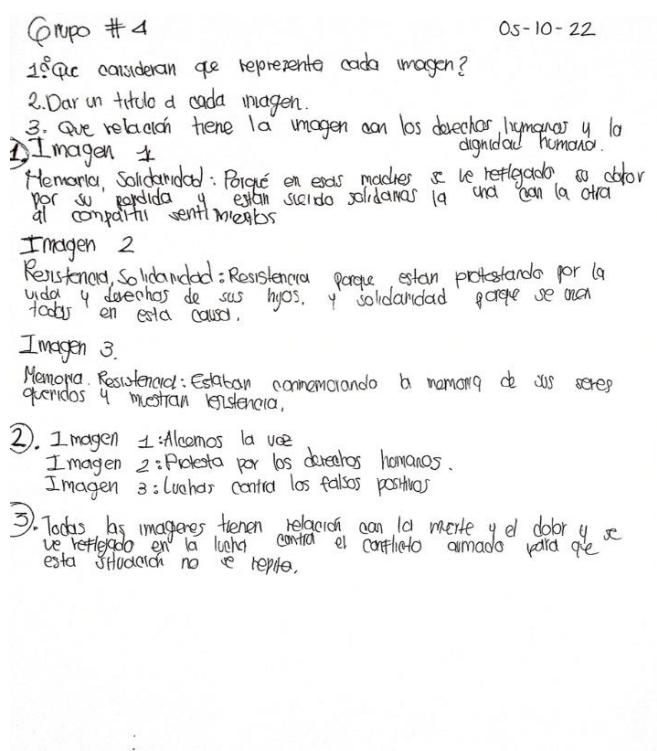 Grupo #4 05-10-22
1. Que consideran que representa cada imagen?
2. Dar un titulo a cada imagen.
3. Que relación tiene la imagen con los derechos humanos y la
dignidad humana.
1) Imagen 1
Memoria, Solidaridad: Porqué en esas madres se ve reflejado su dolor
por su perdida y están siendo solidarias la una con la otra
al compartir sentimientos
Imagen 2
Resistencia, Solidaridad: Resistencia porque estan protestando por la
vida y derechos de sus hijos. y solidaridad porque se unen
todas en esta causa.
Imagen 3.
Memoria. Resistencia: Estaban conmemorando la memoria de sus seres
queridos y muestran resistencia.
2). Imagen 1: Alcemos la voz
Imagen 2: Protesta por los derechos humanos.
Imagen 3: Luchas contra los falsos positivos
3). Todas las imagenes tienen relación con la muerte y el dolor y se
ve reflejado en la lucha contra el conflicto armado para que
esta situación no se repita.